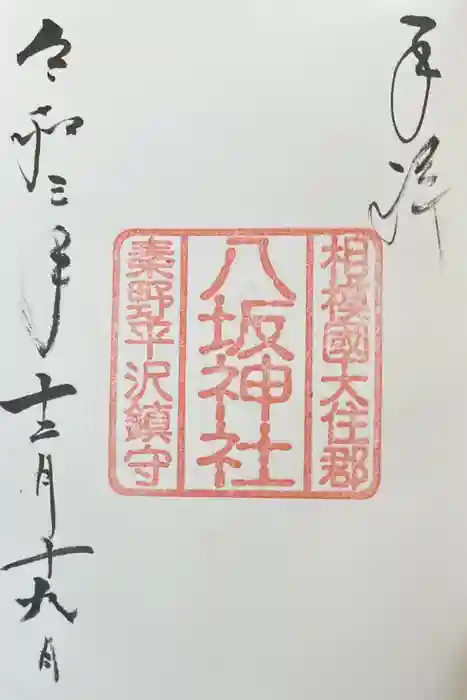 拝拝
相模國大住郡
八坂神社
秦野平沢鎮守
令和三年十二月十九月